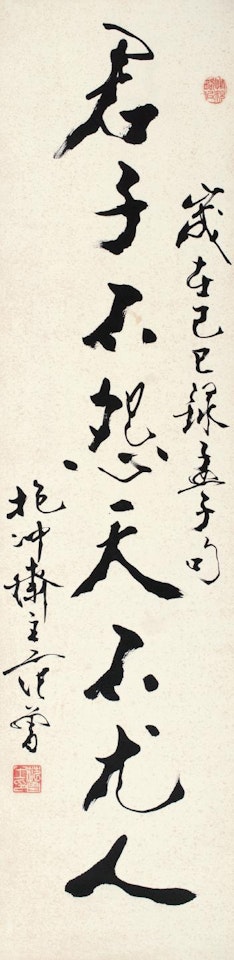 歲在己巳録孟子句
君子不怨天不尤人
抱冲齋主范曾